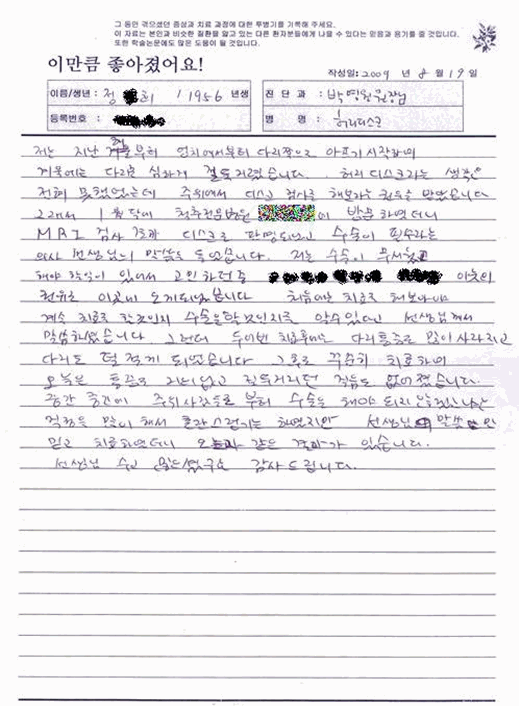 그 동안 겪으셨던 증상과 치료 과정에 대한 투병기를 기록해 주세요.
이 자료는 본인과 비슷한 질환을 앓고 있는 다른 환자분들에게 나을 수 있다는 믿음과 용기를 줄 것입니다.
또한 학술논문에도 많은 도움이 될 것입니다.
이만큼 좋아졌어요!
작성일: 2009 년 8 월 19 일
이름/생년 : 정 희 / 1956 년생
진 단 과 : 박영원장님
등록번호 :
병 명 : 허리디스크
저는 지난 겨울부터 엉치에서부터 다리쪽으로 아프기 시작하며
겨울에는 다리를 심하게 절뚝거렸습니다. 허리디스크라는 생각은
전혀 못했었는데 주위에서 디스크 검사를 해보라는 권유를 받았습니다
그래서 1월달에 척추전문병원 이 방문하였더니
MRI 검사 결과 디스크로 판명되었고 수술이 필수라는
의사 선생님의 말씀을 들었습니다. 저는 수술이 무서웠고
해야 할 일이 있어서 고민하던 중 이웃의
권유로 이곳에 오게되었습니다 처음에는 치료를 해보아야
계속 치료로 할것인지 수술을 할것인지를 알수있다고 선생님께서
말씀하셨습니다 그러더니 두어번 치료후에는 다리통증도 많이 사라지고
다리도 덜 절게 되었습니다 그후로 꾸준히 치료하며
오늘은 통증도 거의 없고 절뚝거리던 걸음도 없어졌습니다.
중간 중간에 주위사람들로 부터 수술을 해야 되지 않겠냐는
걱정을 많이 해서 혼란스럽기는 하였지만 선생님 말씀만
믿고 치료하였더니 오늘과 같은 결과가 있습니다.
선생님 수고 많으셨구요 감사드립니다.